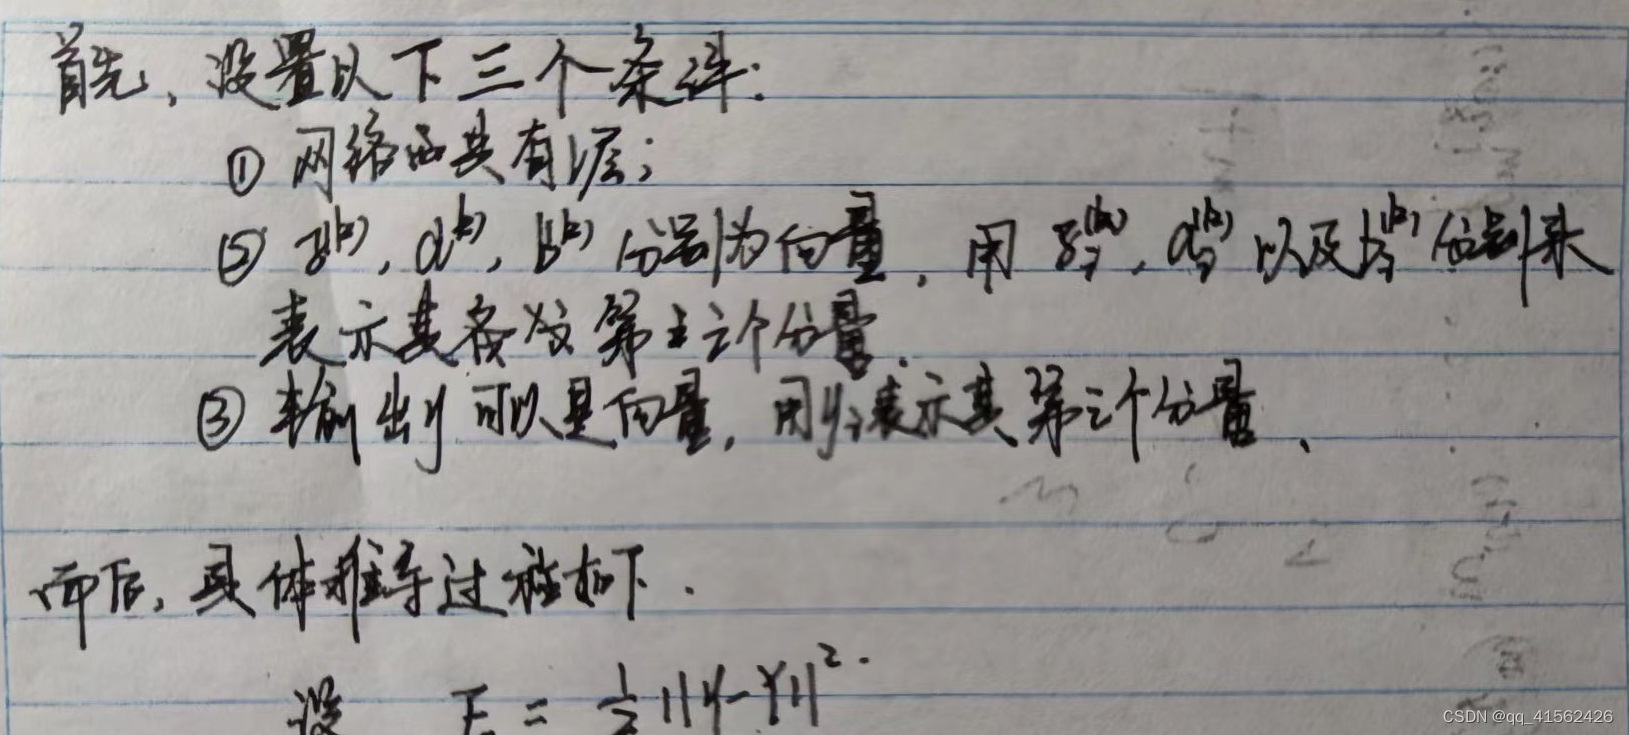 首先，设置以下三个条件：
① 网络共有l层；
② z^(k), a^(k), b^(k) 分别为向量，用 z_i^(k), a_i^(k) 以及 b_i^(k) 分别来
表示其各第i个分量.
③ 输出y可以是向量，用y_i表示其第i个分量、
而后，具体推导过程如下.
设 E = 1/2 ||y-Y||².
CSDN @qq_41562426